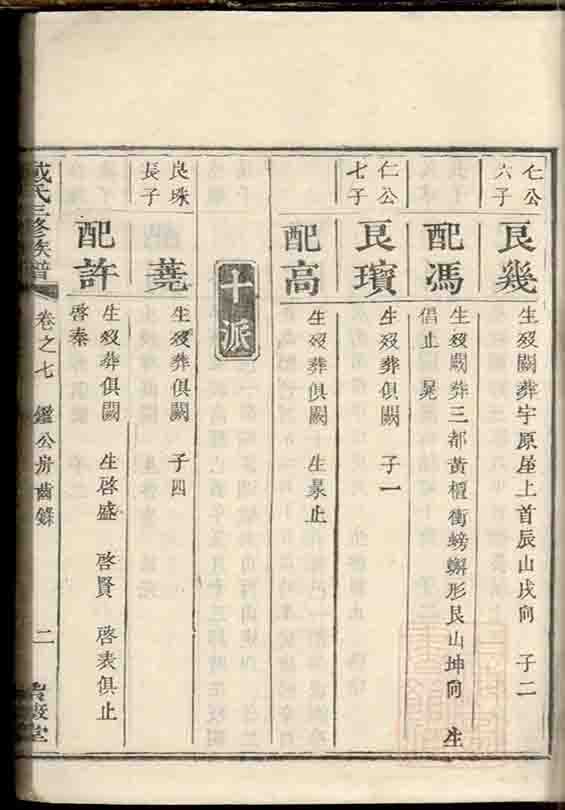 仁公六子
良幾 生歿闕葬宇原屋上首辰山戌向 子二
配馮 生歿闕葬三都黃檀衝螃蠏形艮山坤向 生倡止 晃
仁公七子
良璸 生歿葬俱闕 子一
配高 生歿葬俱闕 生泉止
十派
良珠長子
蕘 生歿葬俱闕 子四
配許 生歿葬俱闕 生啓盛 啓賢 啓表俱止 啓秦
氏三修族譜 卷之七 鑑公房齒錄 二